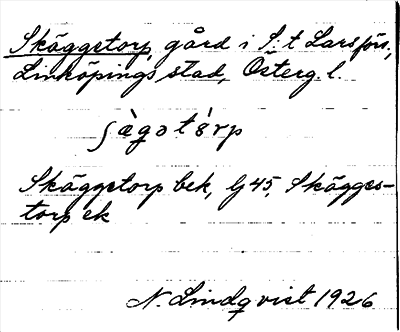 Skäggetorp, gård i S:t Lars förs,
Linköpings stad, Österg. l.
ʃàgət
Skäggetorp bek, G 45, Skägges-
torp ek
N. Lindqvist 1926